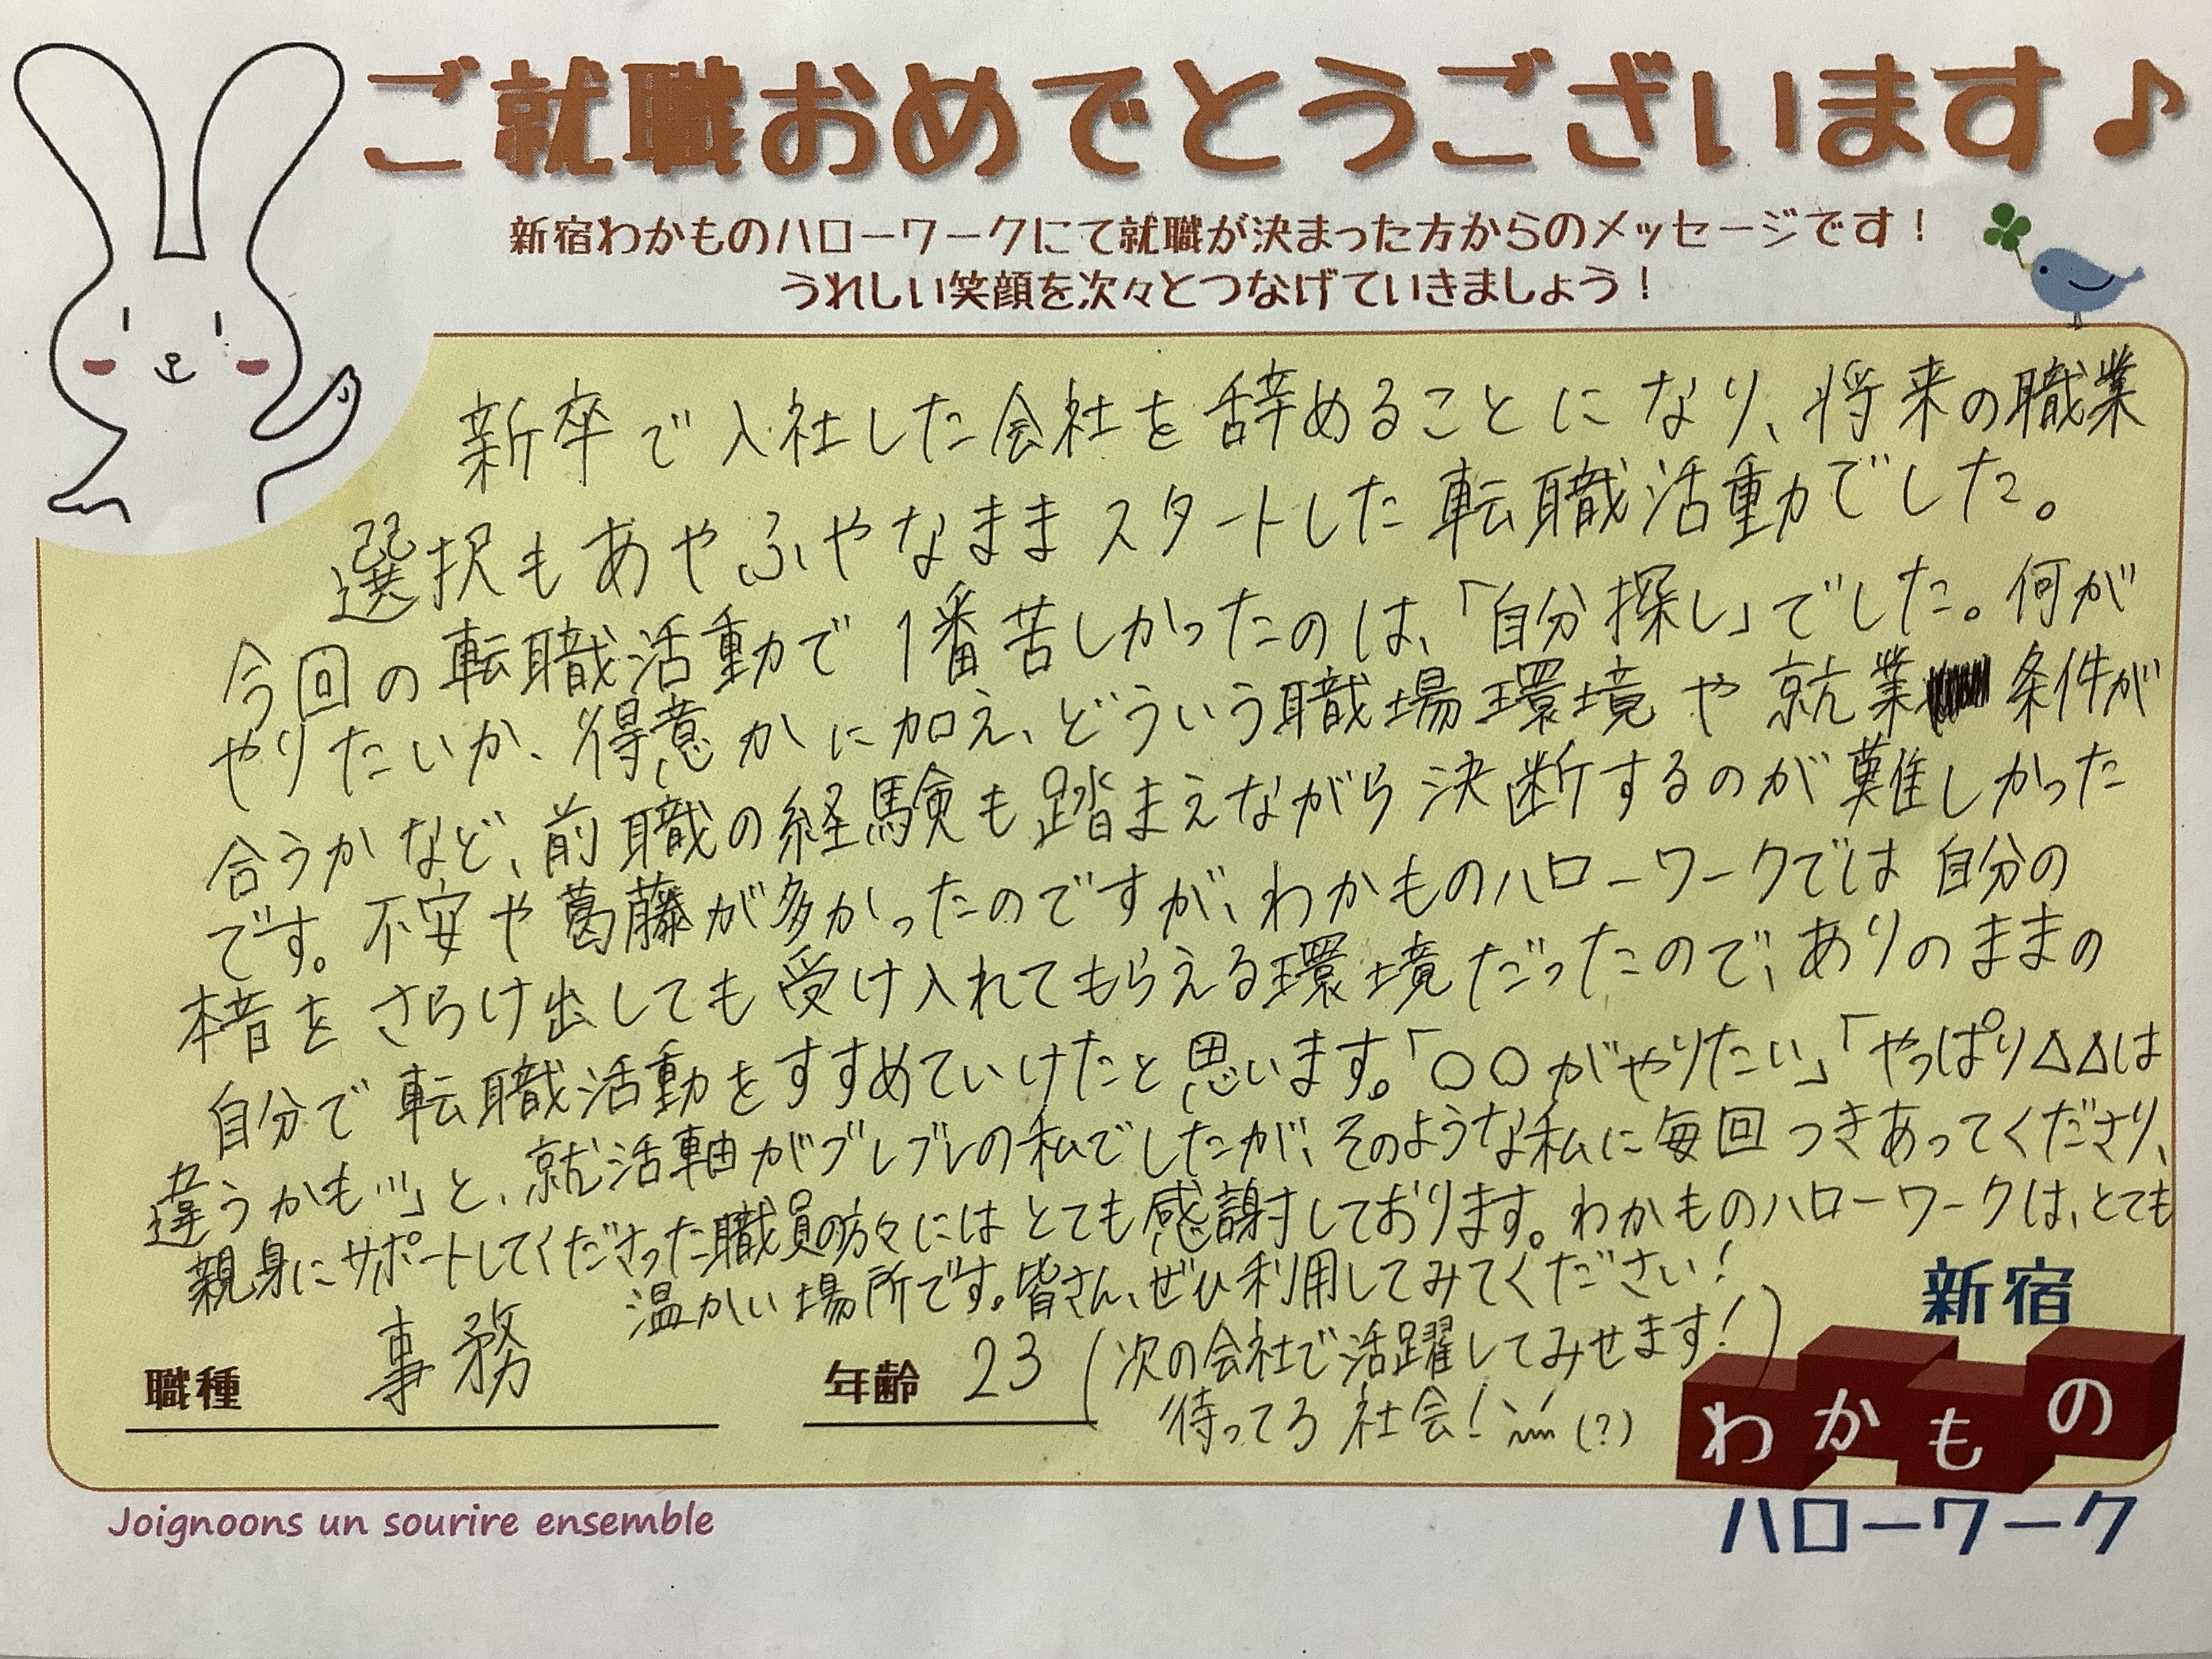 ご就職おめでとうございます♪
新宿わかものハローワークにて就職が決まった方からのメッセージです！
うれしい笑顔を次々とつなげていきましょう！
新卒で入社した会社を辞めることになり、将来の職業
選択もあやふやなままスタートした転職活動でした。
今回の転職活動で1番苦しかったのは、「自分探し」でした。何が
やりたいか、得意かに加え、どういう職場環境や就業条件が
合うかなど、前職の経験も踏まえながら決断するのが難しかった
です。不安や葛藤が多かったのですが、わかものハローワークでは自分の
本音をさらけ出しても受け入れてもらえる環境だったので、ありのままの
自分で転職活動をすすめていけたと思います。「〇〇がやりたい」「やっぱり△△は
違うかも…」と、就活軸がブレブレの私でしたが、そのような私に毎回つきあってくださり、
親身にサポートしてくださった職員の方々にはとても感謝しております。わかものハローワークは、とても
温かい場所です。皆さん、ぜひ利用してみてください！
職種 事務
年齢 23
(次の会社で活躍してみせます！)
待ってろ社会！(?)
新宿
わかもの
ハローワーク
Joignoons un sourire ensemble